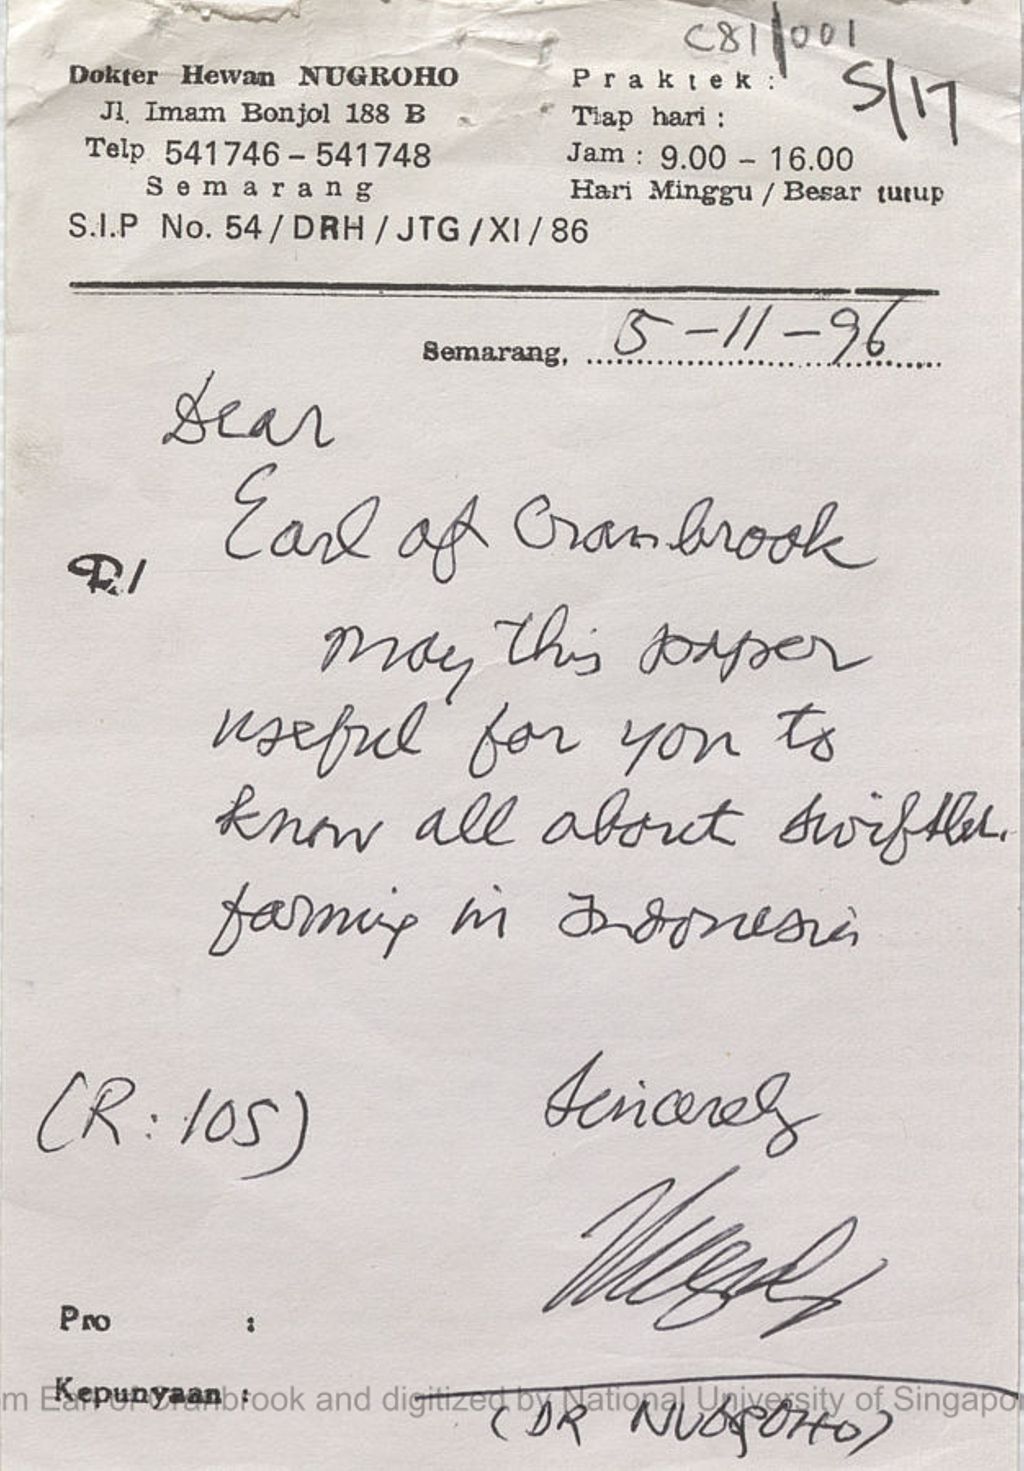 C81/001
S/17
Dokter Hewan NUGROHO
Jl. Imam Bonjol 188 B
Telp 541746 – 541748
Semarang
S.I.P No. 54 / DRH / JTG / XI / 86
Praktek :
Tiap hari :
Jam : 9.00 – 16.00
Hari Minggu / Besar tutup
Semarang, 5-11-96
Dear
Earl of Cranbrook
may this paper
useful for you to
know all about swiftlet.
farming in Indonesia
(R: 105)
Sincerely
Pro :
Kepunyaan :
m Earl of Cranbrook and digitized by National University of Singapo
(DR NUGROHO)